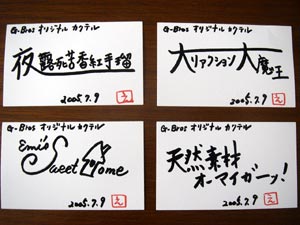 G-Bros オリジナル カクテル
夜露死苦香紅手瑠
2005.7.9
え
G-Bros オリジナル カクテル
大リアクション大魔王
2005.7.9
え
G-Bros オリジナル カクテル
Emi's
Sweet Home
2005.7.9
え
G-Bros オリジナル カクテル
天然素材
オーマイガーッ!
2005.7.9
え